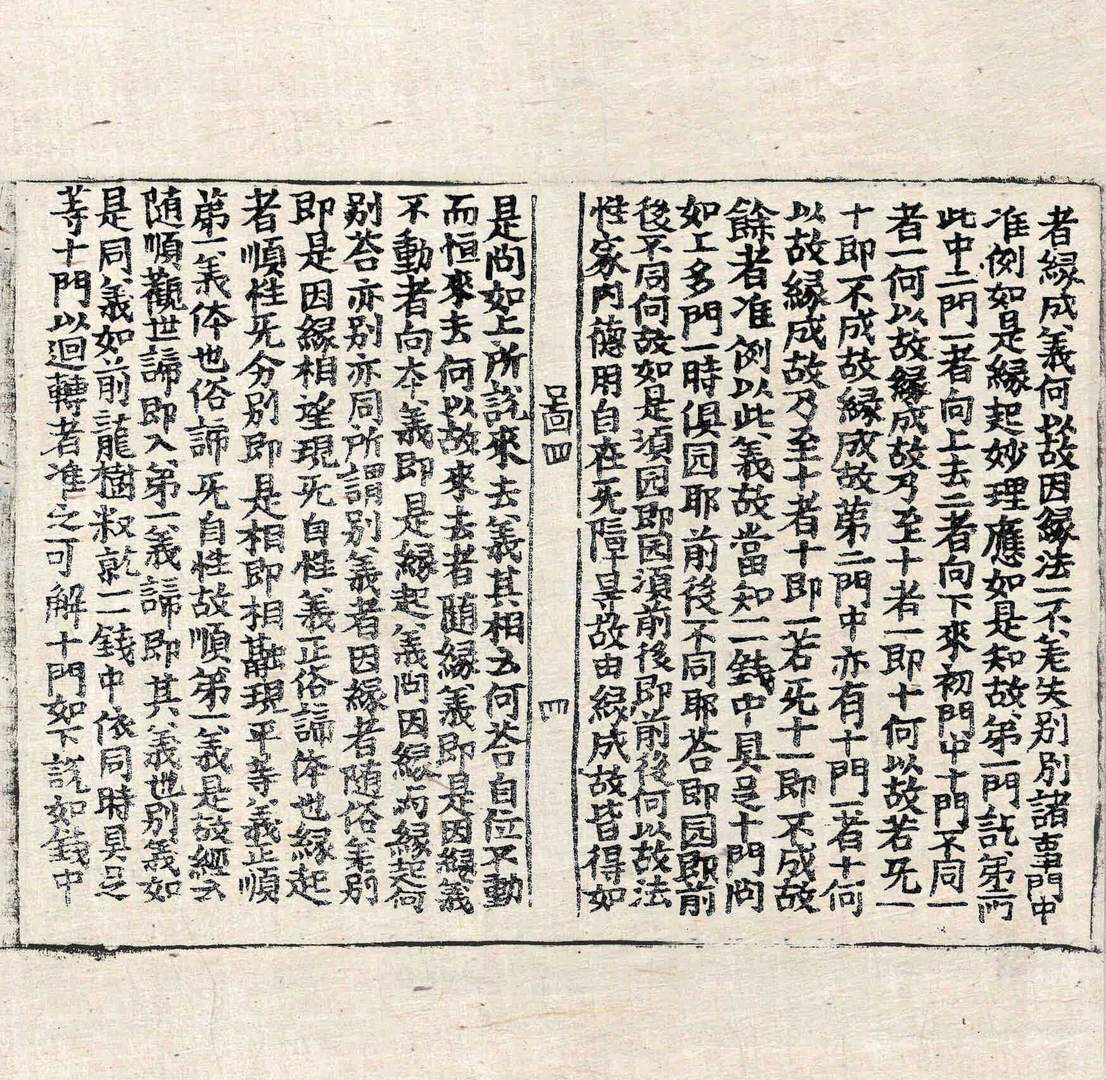 者縁成義何以故因縁法一不差失别别諸事門中
准例如是縁起妙理應如是知故第一門訖第二門
此中二門一者向上去二者向下來初門中十門不同一
者一何以故縁成故乃至十者一即十何以故若旡一
十即不成故縁成故第二門中亦有十門一者十何
以故縁成故乃至十者十即一若旡十一即不成故
餘者准例以此義故當知一一錢中具足十門問
如上多門一時俱园耶前後不同耶荅即园即前
後不同何故如是須园即园須前後即前後何以故法
性家内德用自在旡障㝵故由縁成故皆得如
啚四 四
是問如上所説來去義其相云何荅自位不動
而恒來去何以故來去者随縁義即是因縁義
不動者向本義即是縁起義問因縁而縁起何
别荅亦别亦同所謂别義者因縁者随俗差别
即是因縁相望現旡自性義正俗諦体也縁起
者順性旡分别即是相即相融現平等義正順
第一義体也俗諦旡自性故順第一義是故經云
随順觀世諦即入第一義諦即其義也别義如
是同義如前龍樹釈就一一錢中依同時具足
等十門以迴轉者准之可解十門如下説如錢中